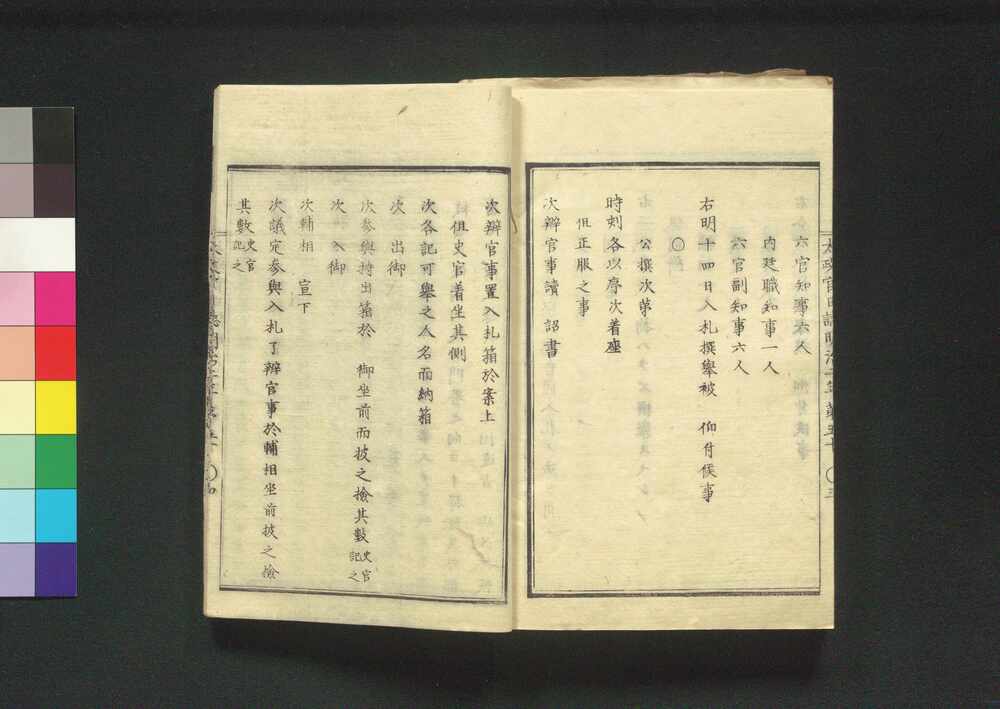 六官知事六人
内廷職知事一人
六官副知事六人
右明十四日入札撰擧被　仰付候事
〇
公撰次第
時刻各以序次着座
但正服之事
次辨官事讀　詔書
次辨官事置入札箱於案上
但史官着坐其側
次各記可擧之人名而納箱
次　出御
次參與持出箱於　御坐前而披之撿其數史官記之
次　入御
次輔相　宣下
次議定參與入札了辨官事於輔相坐前披之撿
其數史官記之